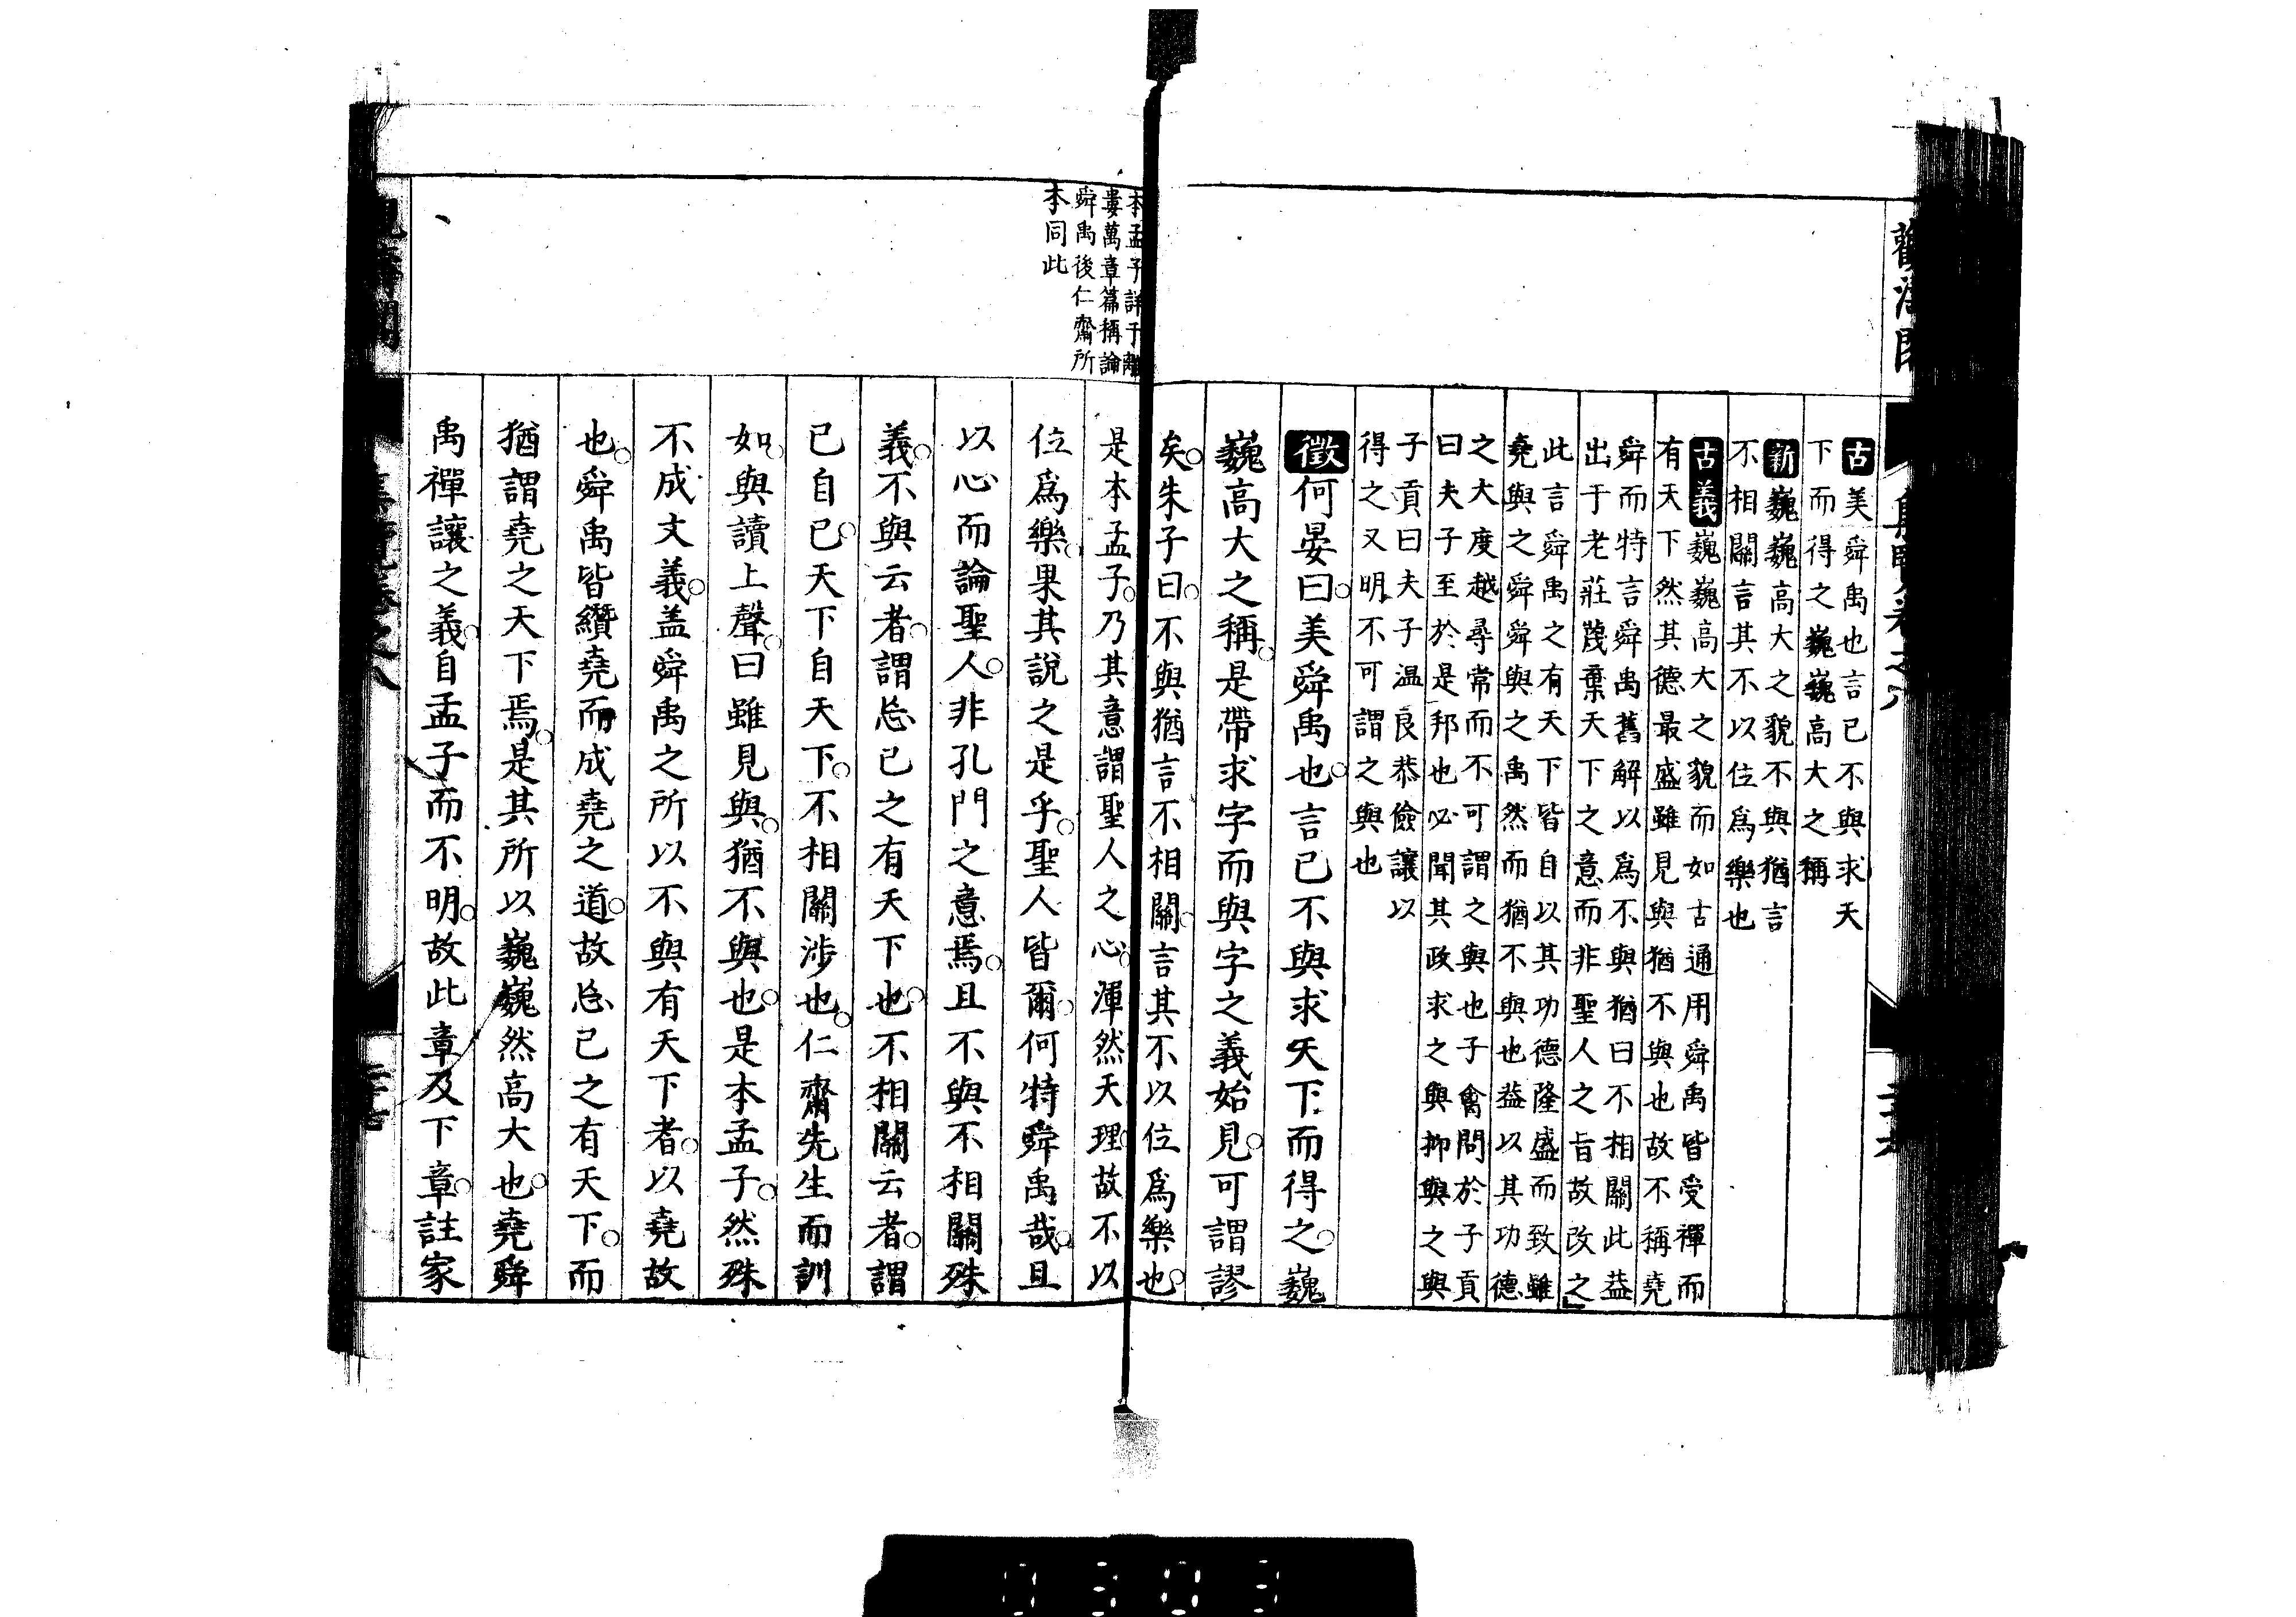 古美舜禹也言已不與求天
下而得之巍巍高大之稱
新巍巍高大之貌不與猶言
不相關言其不以位爲樂也
古義巍巍高大之貌而如古通用舜禹皆受禪而
有天下然其德最盛雖見與猶不與也故不稱堯
舜而特言舜禹舊解以爲不與猶曰不相關此益
出于老莊蔑棄天下之意而非聖人之旨故改之
此言舜禹之有天下皆自以其功德隆盛而致雖
堯與之舜舜與之禹然而猶不與也益以其功德
之大度越尋常而不可謂之與也子禽問於子貢
曰夫子至於是邦也必聞其政求之與抑與之與
子貢曰夫子温良恭儉讓以
得之又明不可謂之與也
徵何晏曰美舜禹也言已不與求天下而得之巍
巍高大之稱是帶求字而與字之義始見可謂謬
矣朱子曰不與猶言不相關言其不以位爲樂也
本孟子詳于離
婁萬章篇稱論
舜禹後仁齋所
本同此
是本孟子乃其意謂聖人之心渾然天理故不以
位爲樂果其說之是乎聖人皆爾何特舜禹哉且
以心而論聖人非孔門之意焉且不與不相關殊
義不與云者謂忘已之有天下也不相關云者謂
已自已天下自天下不相關涉也仁齋先生而訓
如與讀上聲曰雖見與猶不與也是本孟子然殊
不成文義盖舜禹之所以不與有天下者以堯故
也舜禹皆纘堯而成堯之道故忘已之有天下而
猶謂堯之天下焉是其所以巍巍然高大也堯舜
禹禪讓之義自孟子而不明故此章及下章註家
0303